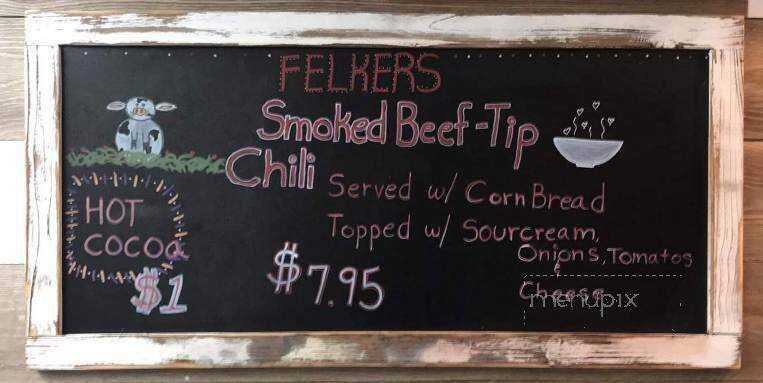 FELKERS
Smoked Beef-Tip
Chili
Served w/ Corn Bread
Topped w/ Sourcream,
Onions, Tomatos
Cheese
$7.95
HOT
COCOA
$1
menupix